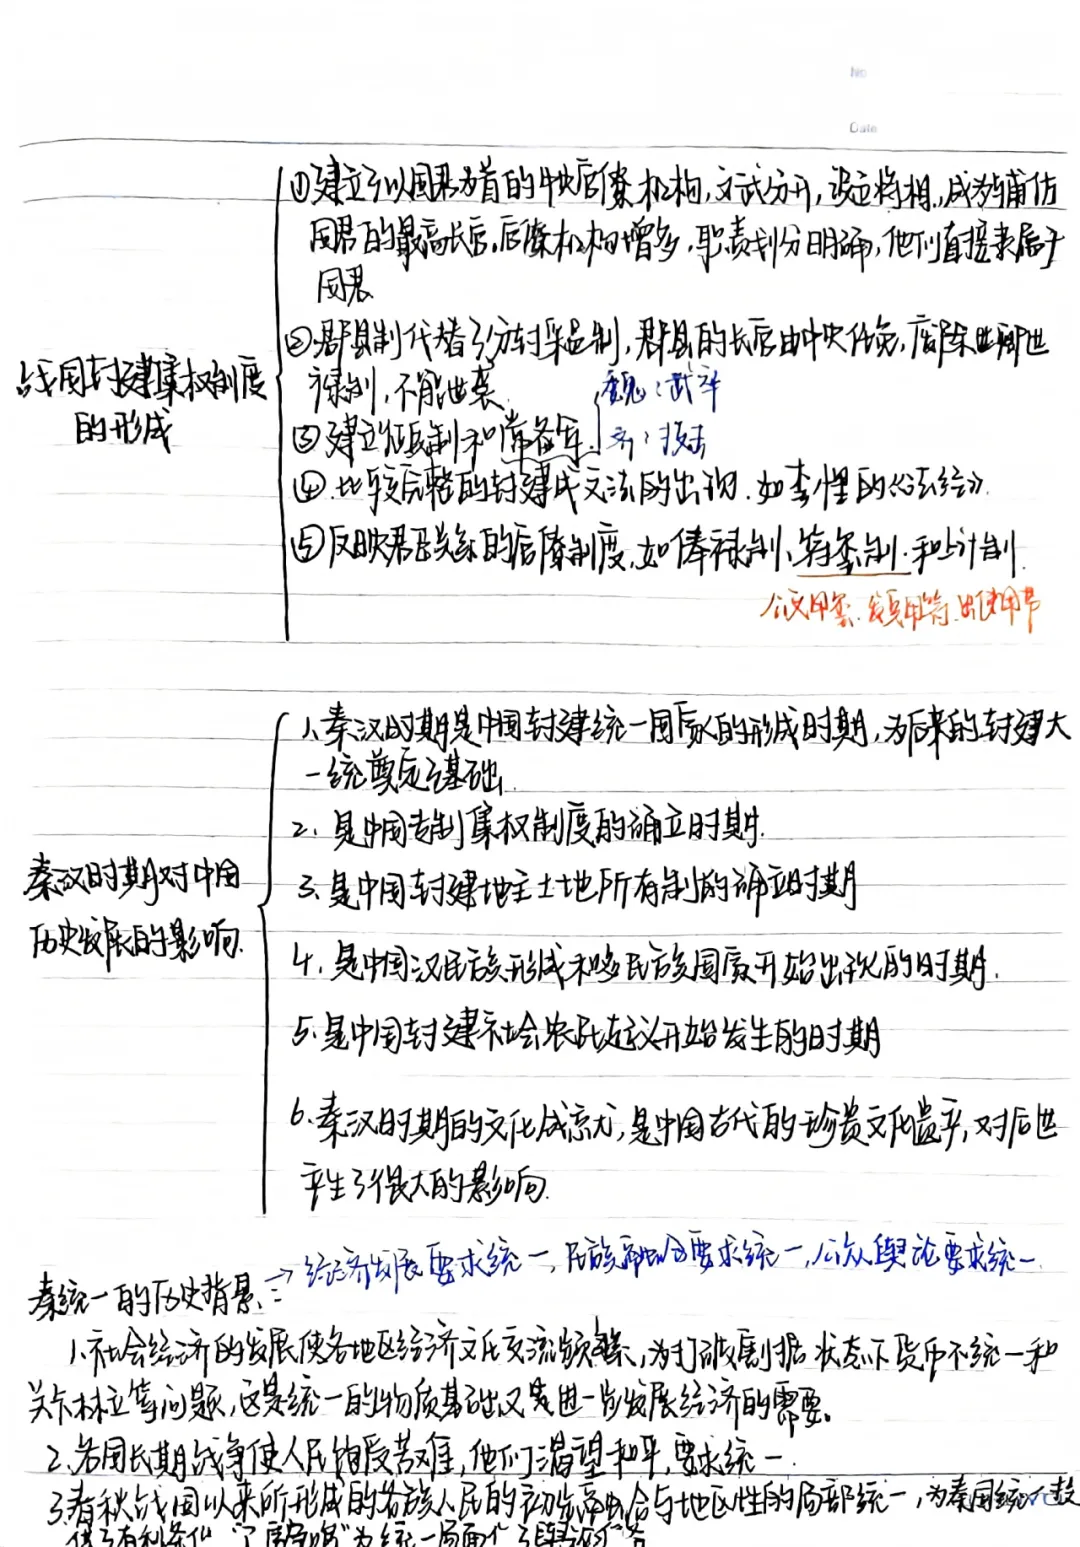 No
Date
①建立了以国君为首的中央官僚机构,文武分开,设立将相,成为辅佐
国君的最高长官,官僚机构增多,职责划分明确,他们直接隶属于
国君
②郡县制代替了分封采邑制,郡县的长官由中央任免,废除世卿世
禄制,不能世袭
魏:武卒
战国封建集权制度
的形成
③建立征兵制和常备军
齐:技击
④.比较完整的封建成文法的出现.如李悝的《法经》.
⑤反映君臣关系的官僚制度,如俸禄制、符玺制.和上计制.
公文用玺.发兵用符.出使用节
1.秦汉时期是中国封建统一国家的形成时期,为后来的封建大
一统奠定了基础.
2.是中国专制集权制度的确立时期.
3.是中国封建地主土地所有制的确立时期
秦汉时期对中国
历史发展的影响.
4.是中国汉民族形成和多民族国家开始出现的时期.
5.是中国封建社会农民起义开始发生的时期
6.秦汉时期的文化成就,是中国古代的珍贵文化遗产,对后世
产生了很大的影响.
秦统一的历史背景.:→经济发展要求统一,民族融合要求统一,公众舆论要求统一.
1.社会经济的发展使各地区经济文化交流频繁,为打破割据状态下货币不统一和
关卡林立等问题,这是统一的物质基础又是进一步发展经济的需要。
2.各国长期战争使人民饱受苦难,他们渴望和平,要求统一.
3.春秋战国以来所形成的各族人民的初步融合与地区性的局部统一,为秦国统一
有利条件
为统一局面